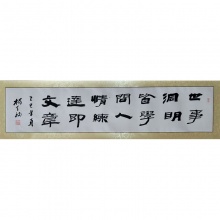 世事
洞明
皆學
問人
情練
達即
文章